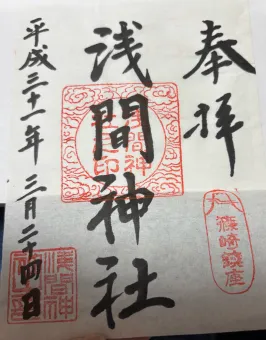 奉拝
浅間神社
平成三十一年 三月二十四日
篠崎鎮座